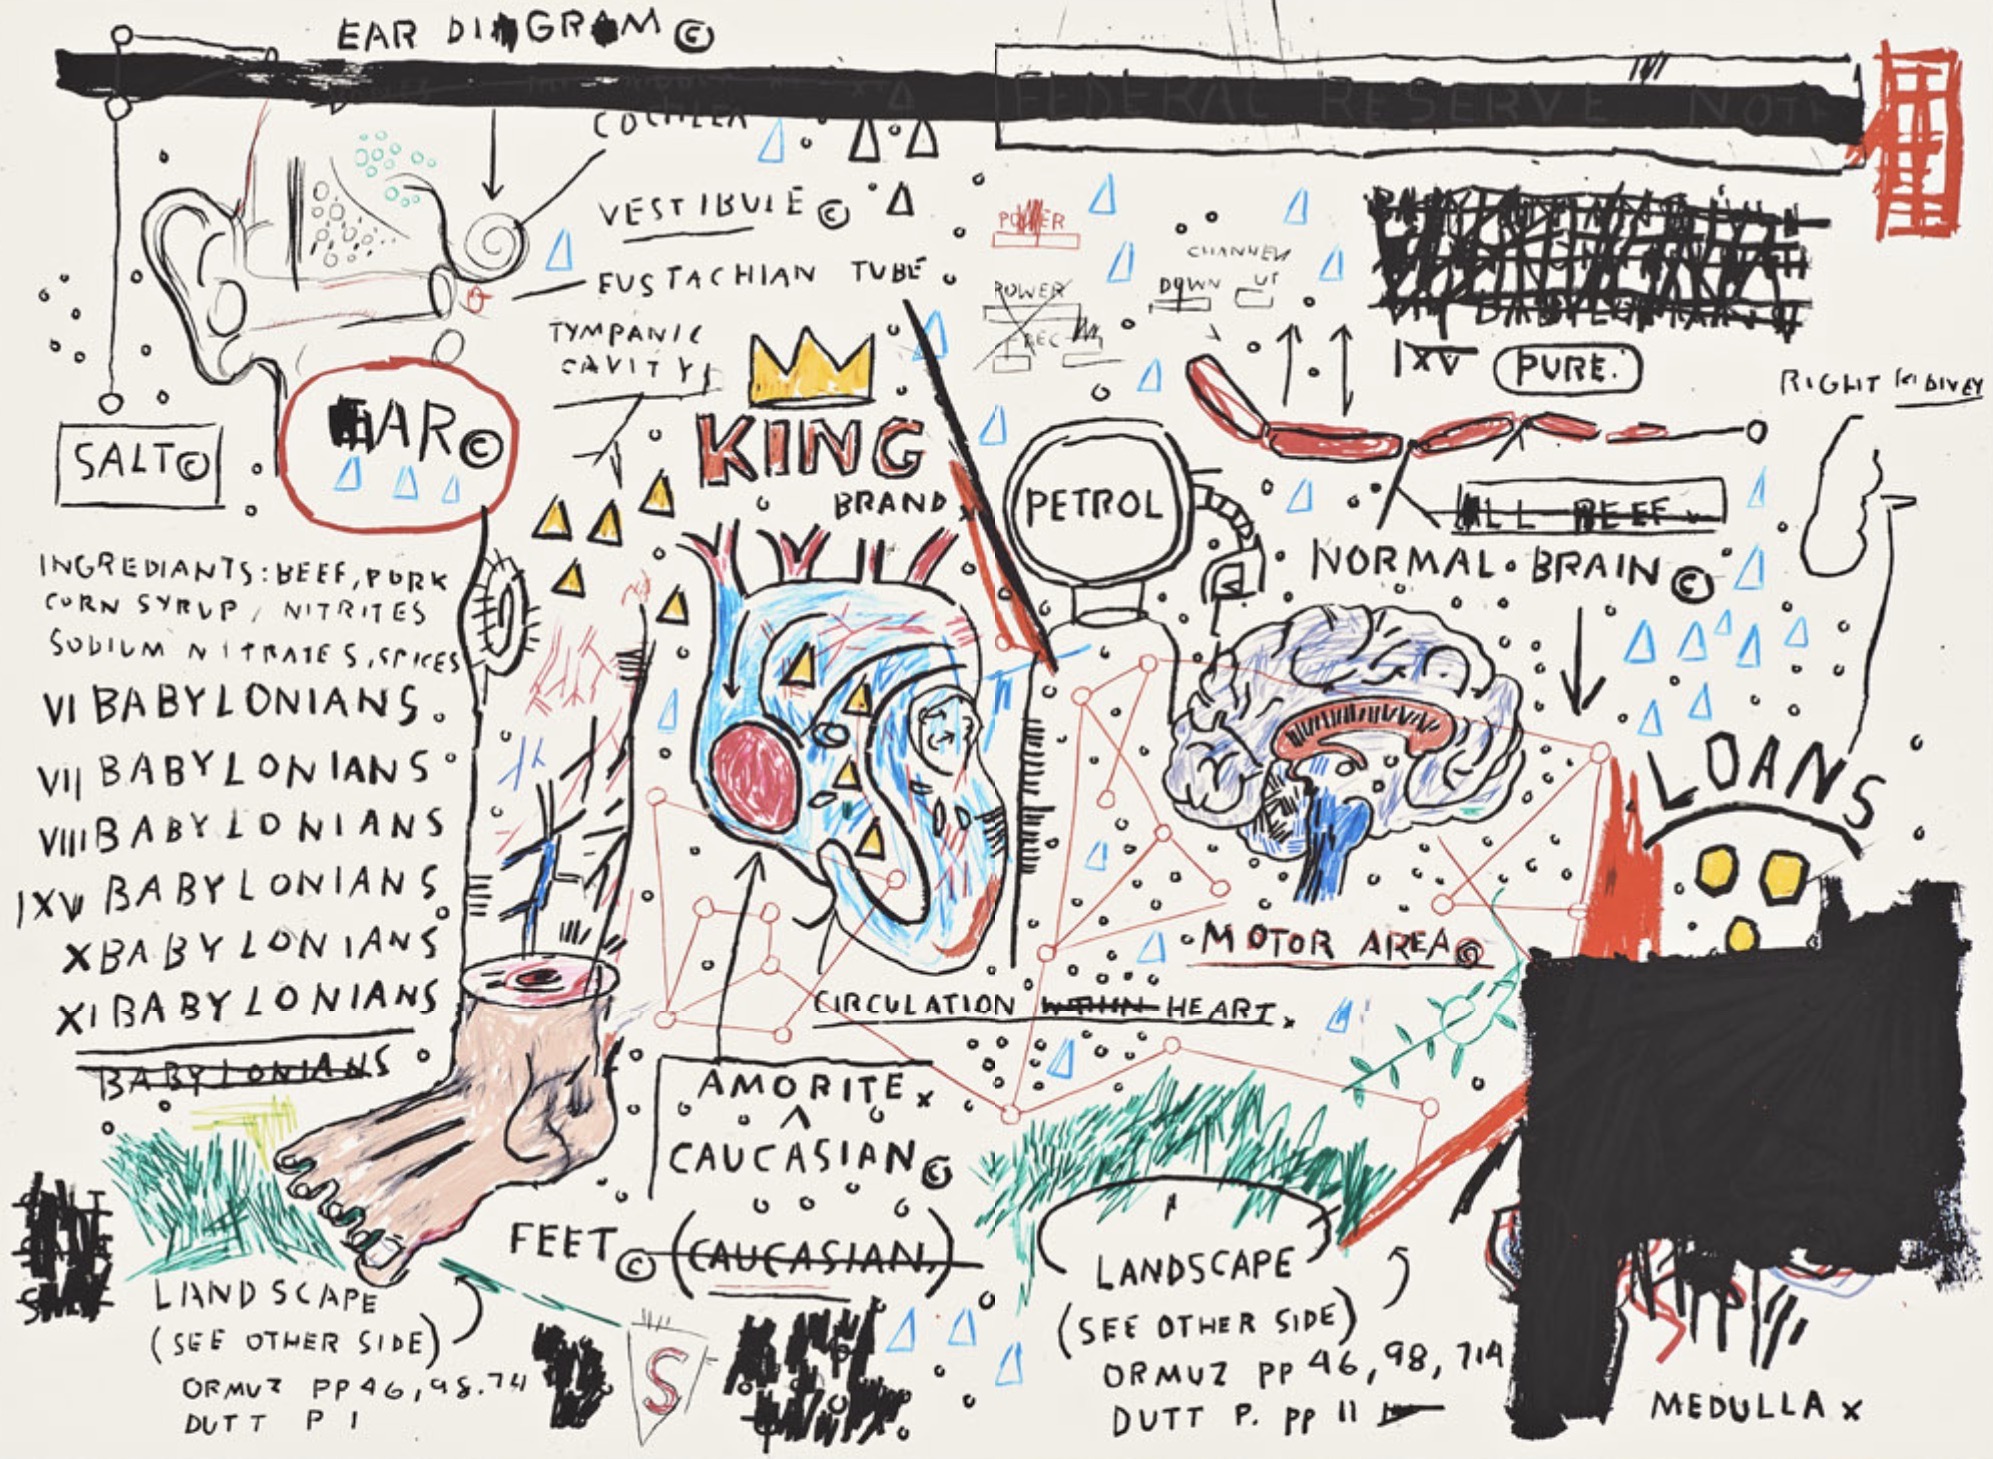 EAR DIAGRAM ©
COCHLEA
FEDERAL RESERVE NOTE
VESTIBULE ©
EUSTACHIAN TUBE
TYMPANIC
CAVITY
POWER
CHANNEL
DOWN UP
POWER
REC
IXV PURE.
RIGHT KIDNEY
SALT ©
EAR ©
KING
BRAND
PETROL
ALL BEEF
NORMAL BRAIN ©
INGREDIANTS: BEEF, PORK
CORN SYRUP, NITRITES
SODIUM NITRATES, SPICES
VI BABYLONIANS
VII BABYLONIANS
VIII BABYLONIANS
IXV BABYLONIANS
X BABYLONIANS
XI BABYLONIANS
BABYLONIANS
LOANS
MOTOR AREA ©
CIRCULATION WITHIN HEART
AMORITE
CAUCASIAN ©
FEET © (CAUCASIAN,)
LANDSCAPE
(SEE OTHER SIDE)
ORMUZ PP 46, 98. 74
DUTT P 1
S
LANDSCAPE
(SEE OTHER SIDE)
ORMUZ PP 46, 98, 714
DUTT P. PP 11
MEDULLA X